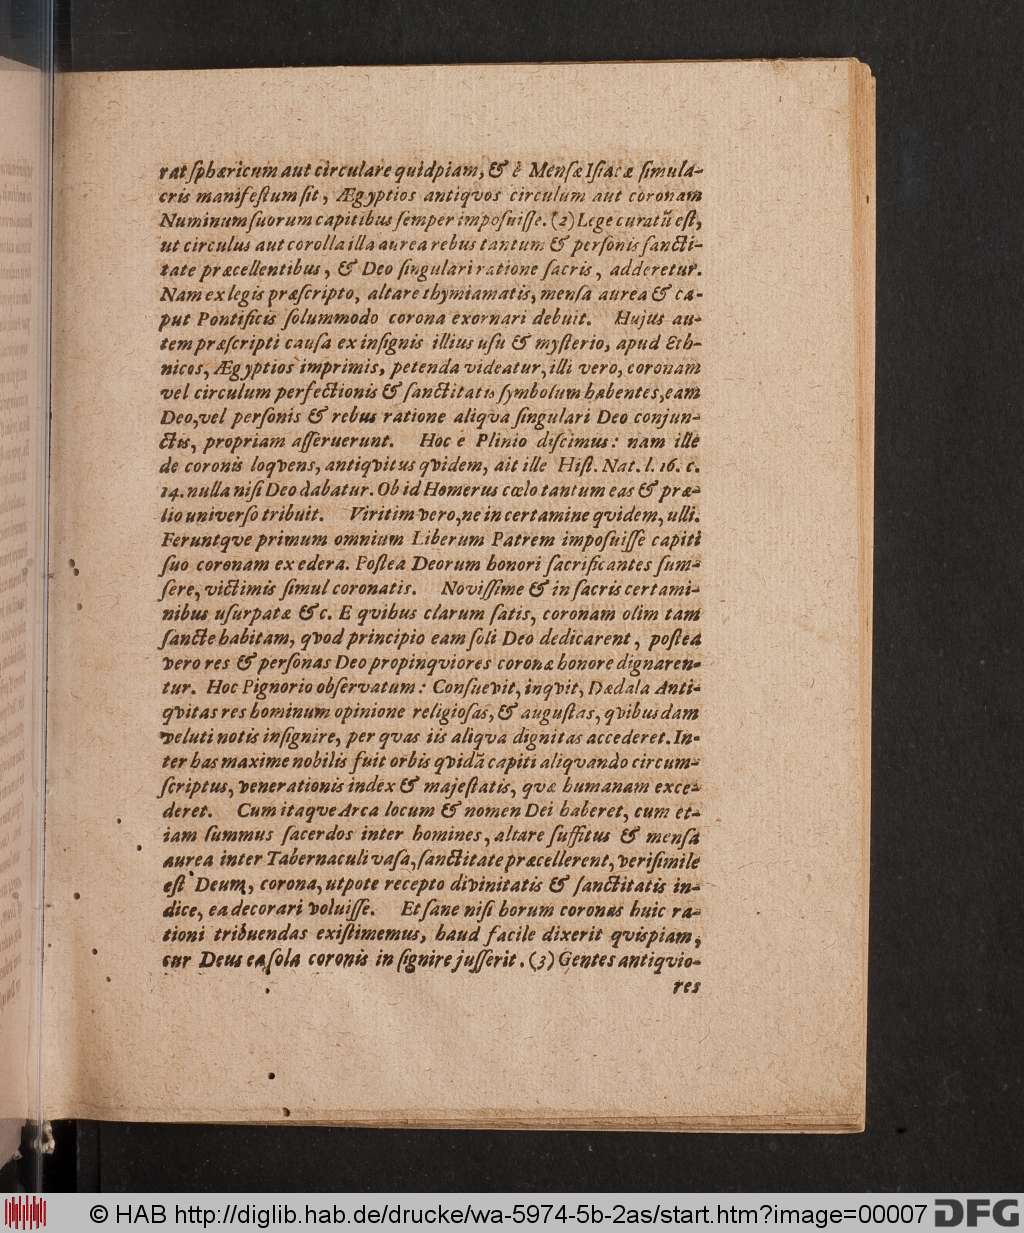 rat ſphæricum aut circulare quidpiam, & è Menſæ Iſiacæ ſimula-
cris manifeſtum ſit, Ægyptios antiqvos circulum aut coronam
Numinum ſuorum capitibus ſemper impoſuiſſe. (2) Lege curatũ eſt,
ut circulus aut corolla illa aurea rebus tantum & perſonis ſancti-
tate præcellentibus, & Deo ſingulari ratione ſacris, adderetur.
Nam ex legis præſcripto, altare thymiamatis, menſa aurea & ca-
put Pontificis ſolummodo corona exornari debuit. Hujus au-
tem præſcripti cauſa ex inſignis illius uſu & myſterio, apud Eth-
nicos, Ægyptios imprimis, petenda videatur, illi vero, coronam
vel circulum perfectionis & ſanctitatis ſymbolum habentes, eam
Deo, vel perſonis & rebus ratione aliqva ſingulari Deo conjun-
ctis, propriam aſſeruerunt. Hoc e Plinio diſcimus: nam ille
de coronis loqvens, antiqvitus qvidem, ait ille Hiſt. Nat. l. 16. c.
14. nulla niſi Deo dabatur. Ob id Homerus cœlo tantum eas & præ-
lio univerſo tribuit. Viritim vero, ne in certamine qvidem, ulli.
Feruntqve primum omnium Liberum Patrem impoſuiſſe capiti
ſuo coronam ex edera. Poſtea Deorum honori ſacrificantes ſum-
ſere, victimis ſimul coronatis. Noviſſime & in ſacris certami-
nibus uſurpatæ &c. E qvibus clarum ſatis, coronam olim tam
ſancte habitam, qvod principio eam ſoli Deo dedicarent, poſtea
vero res & perſonas Deo propinqviores coronæ honore dignaren-
tur. Hoc Pignorio obſervatum: Conſuevit, inqvit, Dædala Anti-
qvitas res hominum opinione religioſas, & auguſtas, qvibusdam
veluti notis inſignire, per qvas iis aliqva dignitas accederet. In-
ter has maxime nobilis fuit orbis qvidã capiti aliquando circum-
ſcriptus, venerationis index & majeſtatis, qvæ humanam exce-
deret. Cum itaqve Arca locum & nomen Dei haberet, cum et-
iam ſummus ſacerdos inter homines, altare ſuffitus & menſa
aurea inter Tabernaculi vaſa, ſanctitate præcellerent, veriſimile
eſt Deum, corona, utpote recepto divinitatis & ſanctitatis in-
dice, ea decorari voluiſſe. Et ſane niſi horum coronas huic ra-
tioni tribuendas exiſtimemus, haud facile dixerit qvispiam,
cur Deus ea ſola coronis inſignire juſſerit. (3) Gentes antiqvio-
res
© HAB http://diglib.hab.de/drucke/wa-5974-5b-2as/start.htm?image=00007
DFG